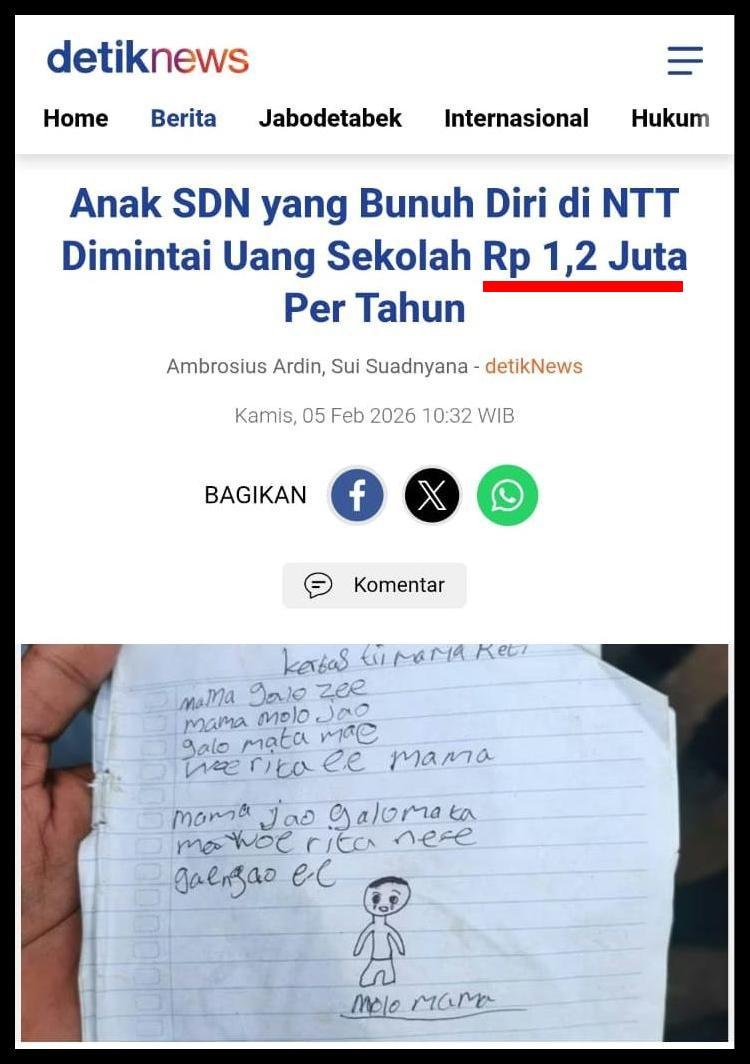 detiknews
Home Berita Jabodetabek Internasional Hukum
Anak SDN yang Bunuh Diri di NTT
Dimintai Uang Sekolah Rp 1,2 Juta
Per Tahun
Ambrosius Ardin, Sui Suadnyana - detikNews
Kamis, 05 Feb 2026 10:32 WIB
BAGIKAN
Komentar
kertas tii mama Reti
mama galo zee
mama molo Jao
galo mata mae
woe rita ee mama
mama jao galo mata
mae woe rita nee
gaengao ee
molo mama